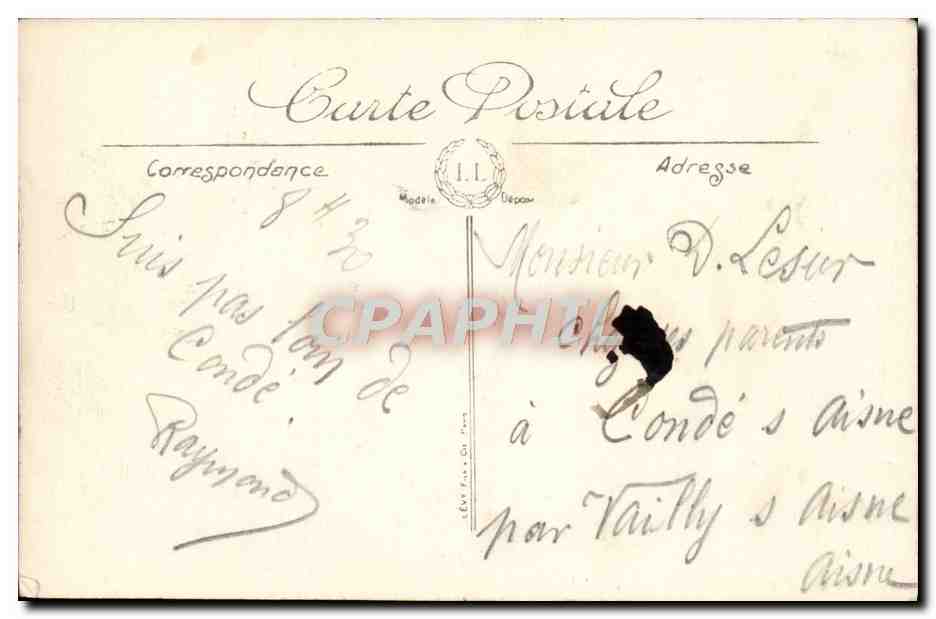 Carte Postale
Correspondance
LL
Adresse
Modèle Déposé
8 4
Suis pas loin de
Condé.
Raymond
Monsieur D. Lesur
parents
à Condé s Aisne
par Vailly s Aisne
Aisne
LÉVY Fils & Cie Paris
CPAPHIL